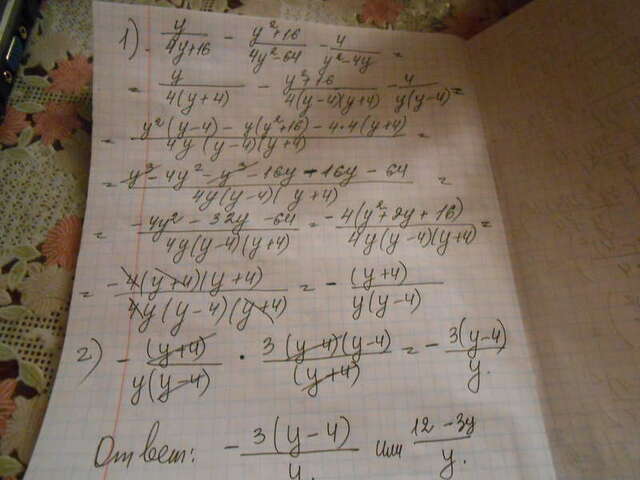 1). y/(4y+16) - (y²+16)/(4y²-64) - 4/(y²-4y) =
= y/(4(y+4)) - (y²+16)/(4(y-4)(y+4)) - 4/(y(y-4)) =
= (y²(y-4) - y(y²+16) - 4·4(y+4))/(4y(y-4)(y+4)) =
= (y³ - 4y² - y³ - 16y - 16y - 64)/(4y(y-4)(y+4)) =
= (-4y² - 32y - 64)/(4y(y-4)(y+4)) = (-4(y²+8y+16))/(4y(y-4)(y+4)) =
= (-4(y+4)(y+4))/(4y(y-4)(y+4)) = - (y+4)/(y(y-4))
2) - (y+4)/(y(y-4)) · (3(y-4)(y-4))/(y+4) = - 3(y-4)/y.
Ответ: - 3(y-4)/y. или (12-3y)/y.